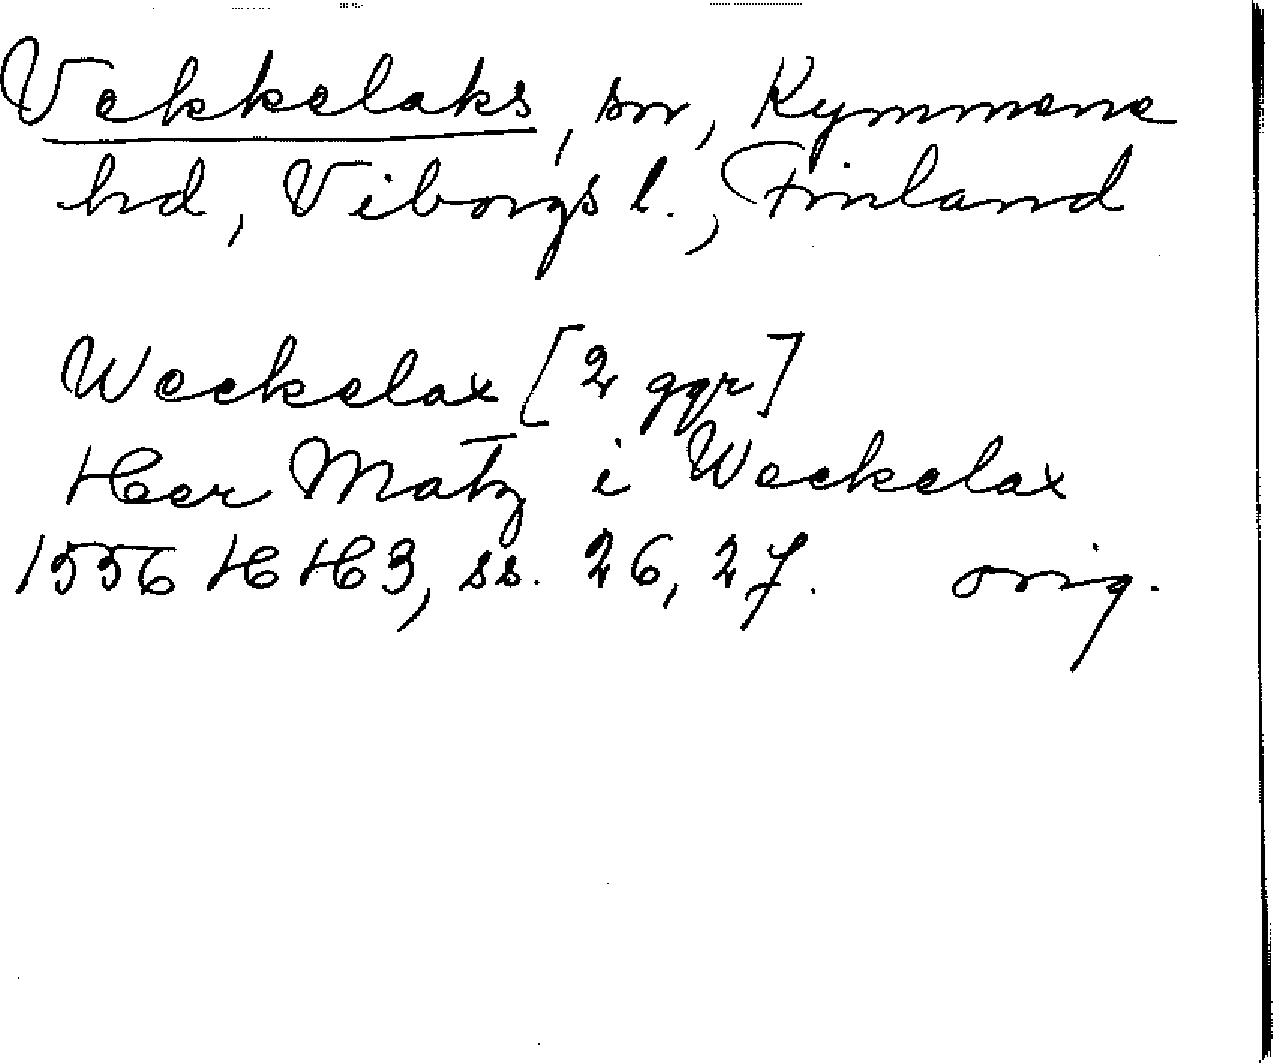 Vekkelaks, sn, Kymmene
hd, Viborgs l., Finland
Weckelax [2 ggr]
Her Matz i Weckelax
1556 HH3, ss. 26, 27. orig.